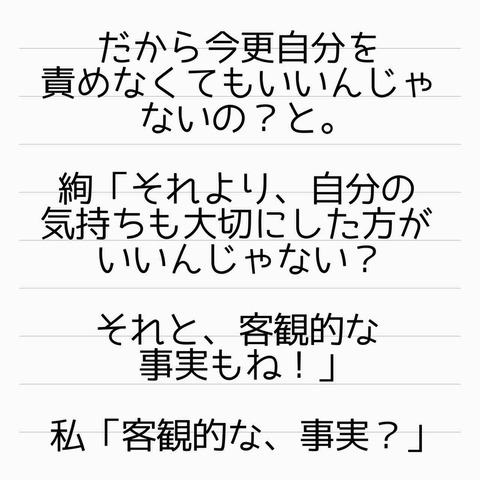 だから今更自分を
責めなくてもいいんじゃ
ないの？と。
絢「それより、自分の
気持ちも大切にした方が
いいんじゃない？
それと、客観的な
事実もね！」
私「客観的な、事実？」